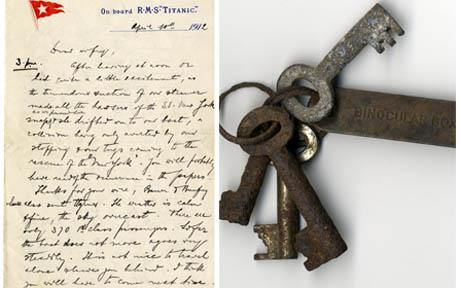 On board R.M.S "TITANIC."
April 10th 1912
Dear wifey,
3. pm.
After leaving at noon
had quite a little excitement, as
the tremendous suction of our steamer
made all the hawsers of the SS. New York
snap
drifted on to our boat, a
collision being only averted by our
stopping
tugs coming to the
rescue of the "New York". You will probably
have
the
in the papers
Thanks for your wire,
The weather is calm
the sky overcast. There are
only 370 1st class passengers. So far
the boat does not move
very
steadily. It is not nice to travel
alone
you behind. I think
you will have to come next time
BINOCULAR BO